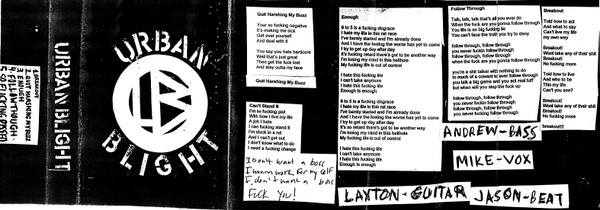 URBAN BLIGHT
2. QUIT HARSHING MY BUZZ
3. ENOUGH
4. FOLLOW THROUGH
URBAN
BLIGHT
Quit Harshing My Buzz
Your so fucking negative
It's making me sick
Get over yourself
And deal with it
You say you hate hardcore
Well that's just great
Then get the fuck lost
And stay outta my face
Quit Harshing My Buzz
Can't Stand It
I'm so fucking pist
With how I live my life
A job I hate
I can fucking stand it
I'm stuck in a rut
And I can't get out
I don't know what to do
I need a fucking change
I don't want a boss
I wanna work for my self
I don't want a boss
Fuck you!
Enough
9 to 5 is a fucking disgrace
I hate my life in this rat race
I've barely started and I'm already done
And I have the feeling the worse has yet to come
I try to get up day after day
It's fucking retard there's got to be another way
I'm losing my mind in this hellhole
My fucking life is out of control
I hate this fucking life
I can't take anymore
I hate this fucking life
Enough is enough
9 to 5 is a fucking disgrace
I hate my life in this rat race
I've barely started and I'm already done
And I have the feeling the worse has yet to come
I try to get up day after day
It's so retard there's got to be another way
I'm losing my mind in this hellhole
My fucking life is out of control
I hate this fucking life
I can't take anymore
I hate this fucking life
Enough is enough
Follow Through
Talk, talk, talk that's all you ever do
When the fuck are you gonna follow through
You life is on big fucking lie
You can't face the truth you try to deny
follow through, follow through
when you never fuckin follow through
follow through, follow through
when the fuck are you gonna follow through
you're a shit talker with nothing to do
to much of a coward to ever follow through
you talk a big game and you act real tuff
but when will you step the fuck up
follow through, follow through
you never fuckin follow through
follow through, follow through
you never fucking follow through
Breakout
Told how to act
And what to say
Can't live my life
my own way
Breakout!
Wont take any of their shit
Breakout!
No fucking more
Told how to live
And who to be
This my life
Can't you see?
Breakout!
Wont take any of their shit
Breakout!
No fucking more
breakout!!!
ANDREW-BASS
MIKE-VOX
LAXTON-GUITAR
JASON-BEAT